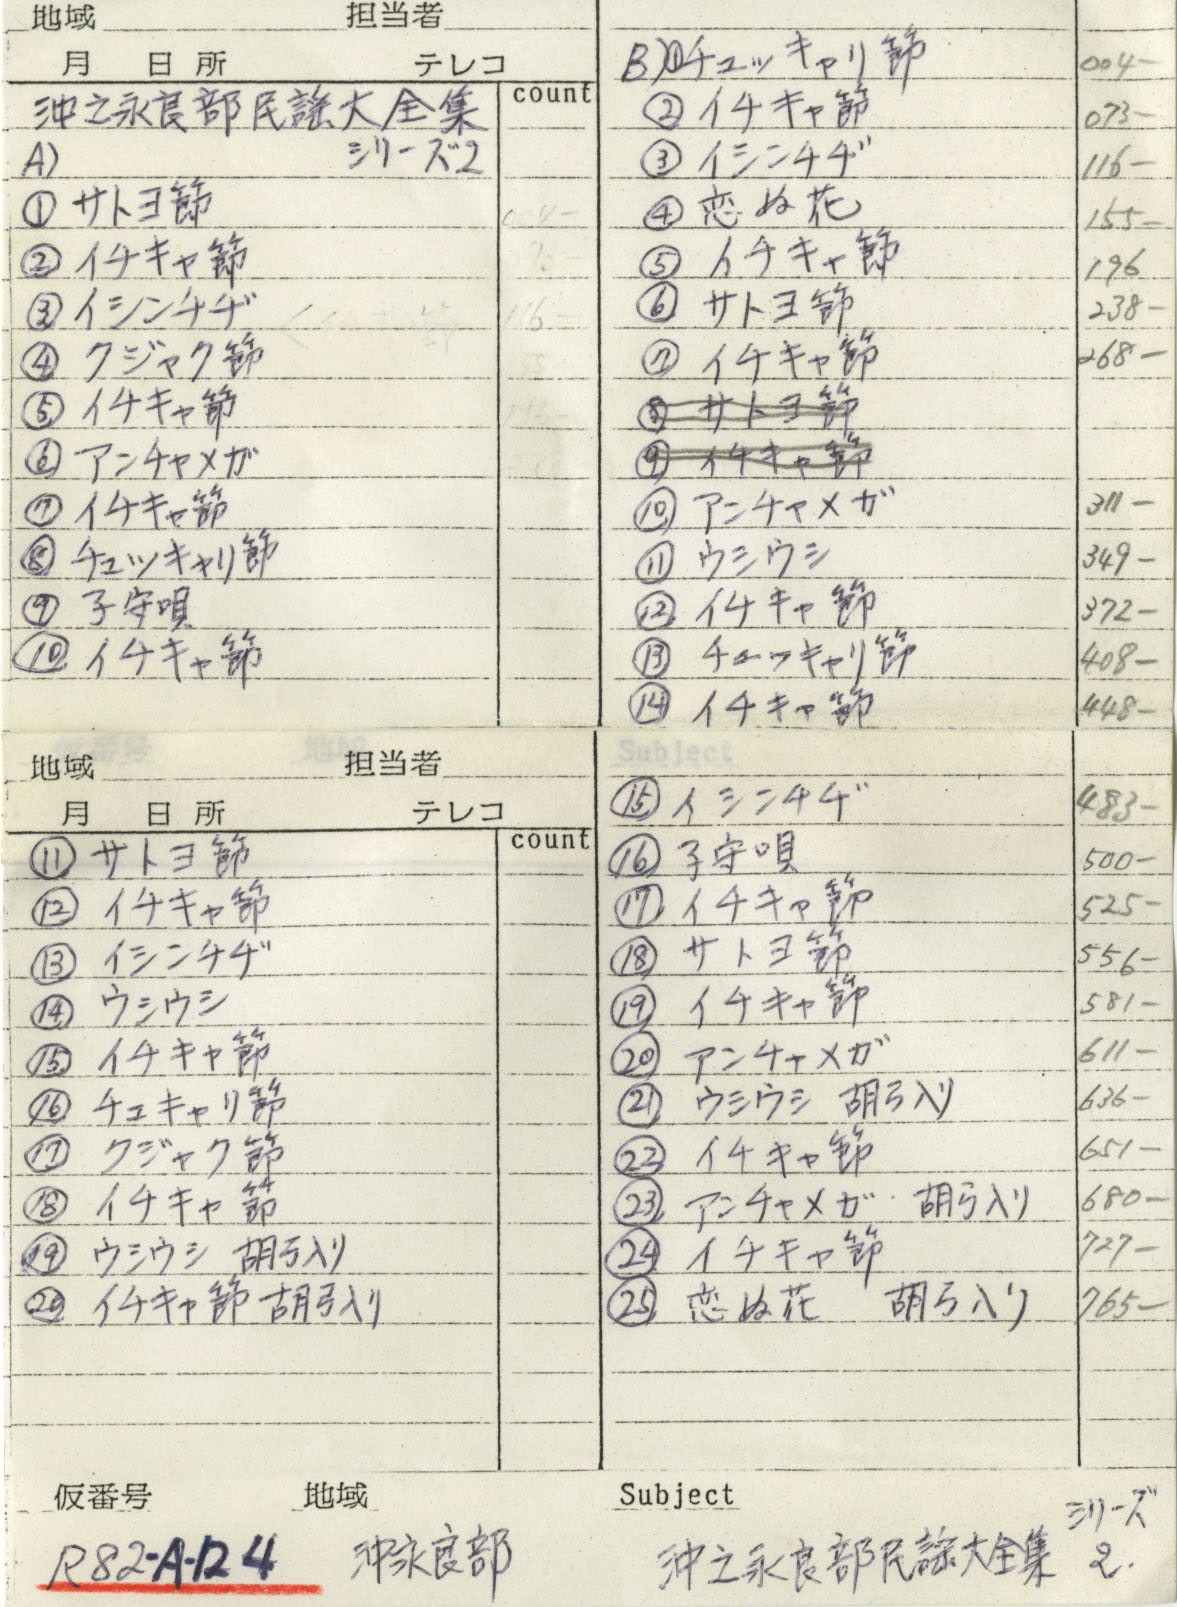 地域 担当者
月 日 所 テレコ
count
沖之永良部民謡大全集
A) シリーズ2
① サトヨ節
② イチキャ節
③ イシンチヂ
④ クジャク節
⑤ イチキャ節
⑥ アンチャメガ
⑦ イチキャ節
⑧ チュッキャリ節
⑨ 子守唄
⑩ イチキャ節
B)①チュッキャリ節 004-
② イチキャ節 073-
③ イシンチヂ 116-
④ 恋ぬ花 155-
⑤ イチキャ節 196
⑥ サトヨ節 238-
⑦ イチキャ節 268-
⑧ サトヨ節
⑨ イチキャ節
⑩ アンチャメガ 311-
⑪ ウシウシ 349-
⑫ イチキャ節 372-
⑬ チューッキャリ節 408-
⑭ イチキャ節 448-
地域 担当者
月 日 所 テレコ
count
⑪ サトヨ節
⑫ イチキャ節
⑬ イシンチヂ
⑭ ウシウシ
⑮ イチキャ節
⑯ チュキャリ節
⑰ クジャク節
⑱ イチキャ節
⑲ ウシウシ 胡弓入り
⑳ イチキャ節 胡弓入り
⑮ イシンチヂ 483-
⑯ 子守唄 500-
⑰ イチキャ節 525-
⑱ サトヨ節 556-
⑲ イチキャ節 581-
⑳ アンチャメガ 611-
㉑ ウシウシ 胡弓入り 636-
㉒ イチキャ節 651-
㉓ アンチャメガ・胡弓入り 680-
㉔ イチキャ節 727-
㉕ 恋ぬ花 胡弓入り 765-
仮番号 地域 Subject
R82-A-124 沖永良部 沖之永良部民謡大全集 シリーズ2.